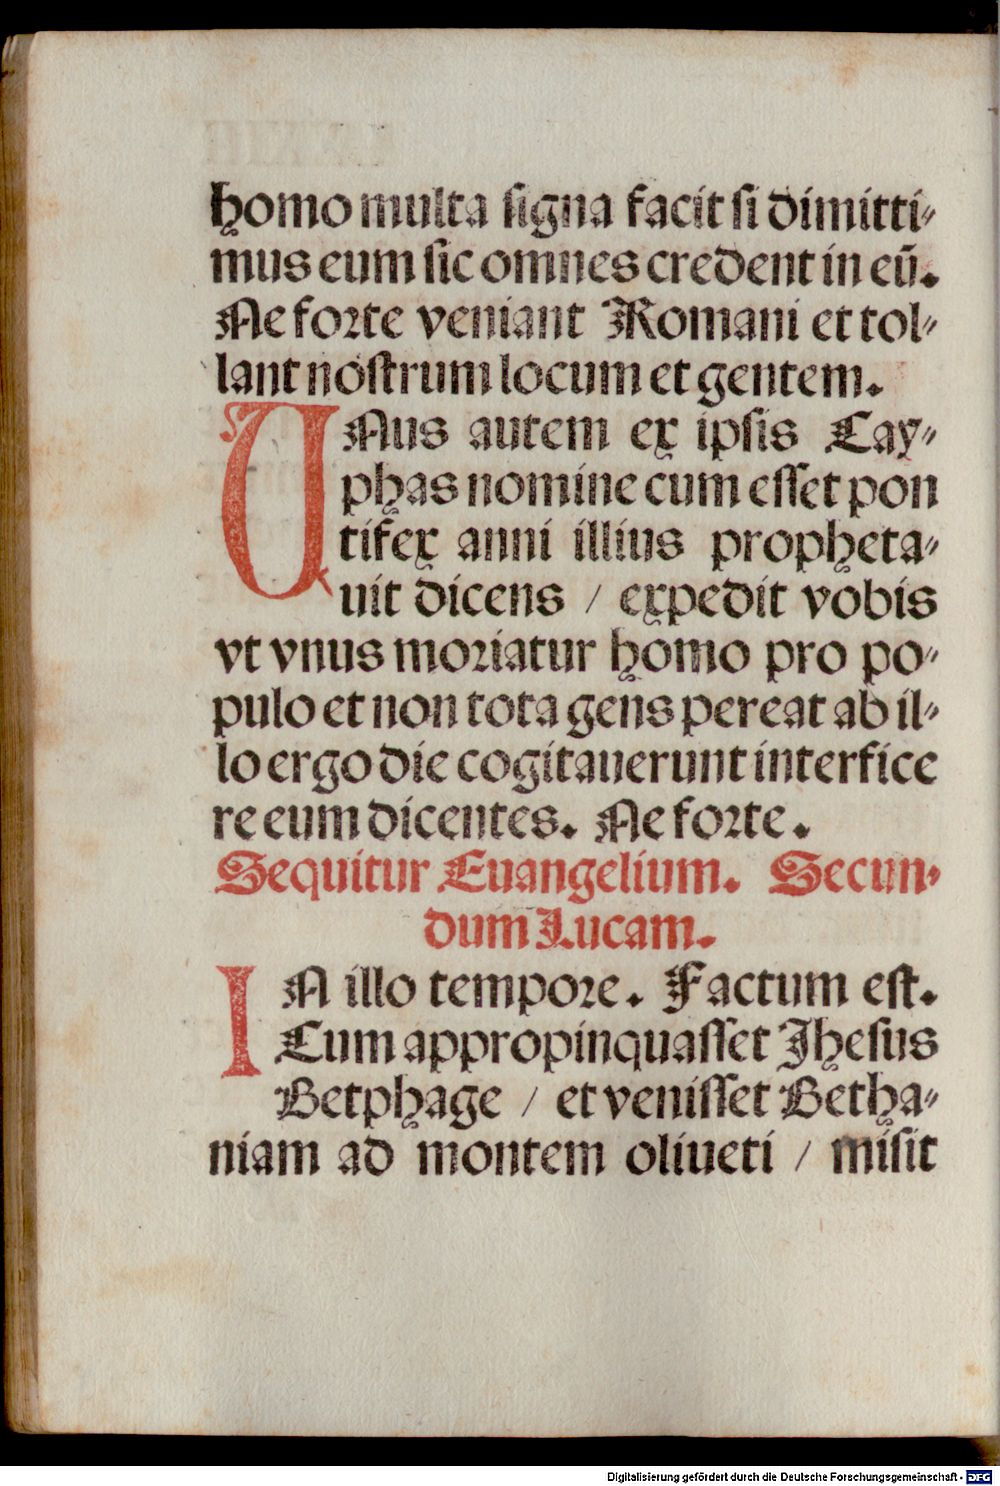 homo multa signa facit si dimitti⸗
mus eum sic omnes credent in eū.
Ne forte veniant Romani et tol⸗
lant nostrum locum et gentem.
UNus autem ex ipsis Cay⸗
phas nomine cum esset pon
tifex anni illius propheta⸗
uit dicens / expedit vobis
vt vnus moriatur homo pro po⸗
pulo et non tota gens pereat ab il⸗
lo ergo die cogitauerunt interfice
re eum dicentes. Ne forte.
Sequitur Euangelium. Secun⸗
dum Lucam.
IN illo tempore. Factum est.
Cum appropinquasset Jhesus
Betphage / et venisset Betha⸗
niam ad montem oliueti / misit
Digitalisierung gefördert durch die Deutsche Forschungsgemeinschaft - DFG